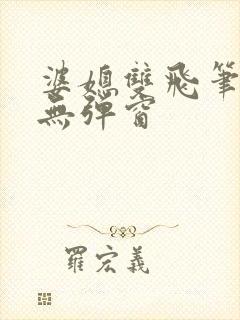 婆媳雙飛筆
無彈窗
羅宏義